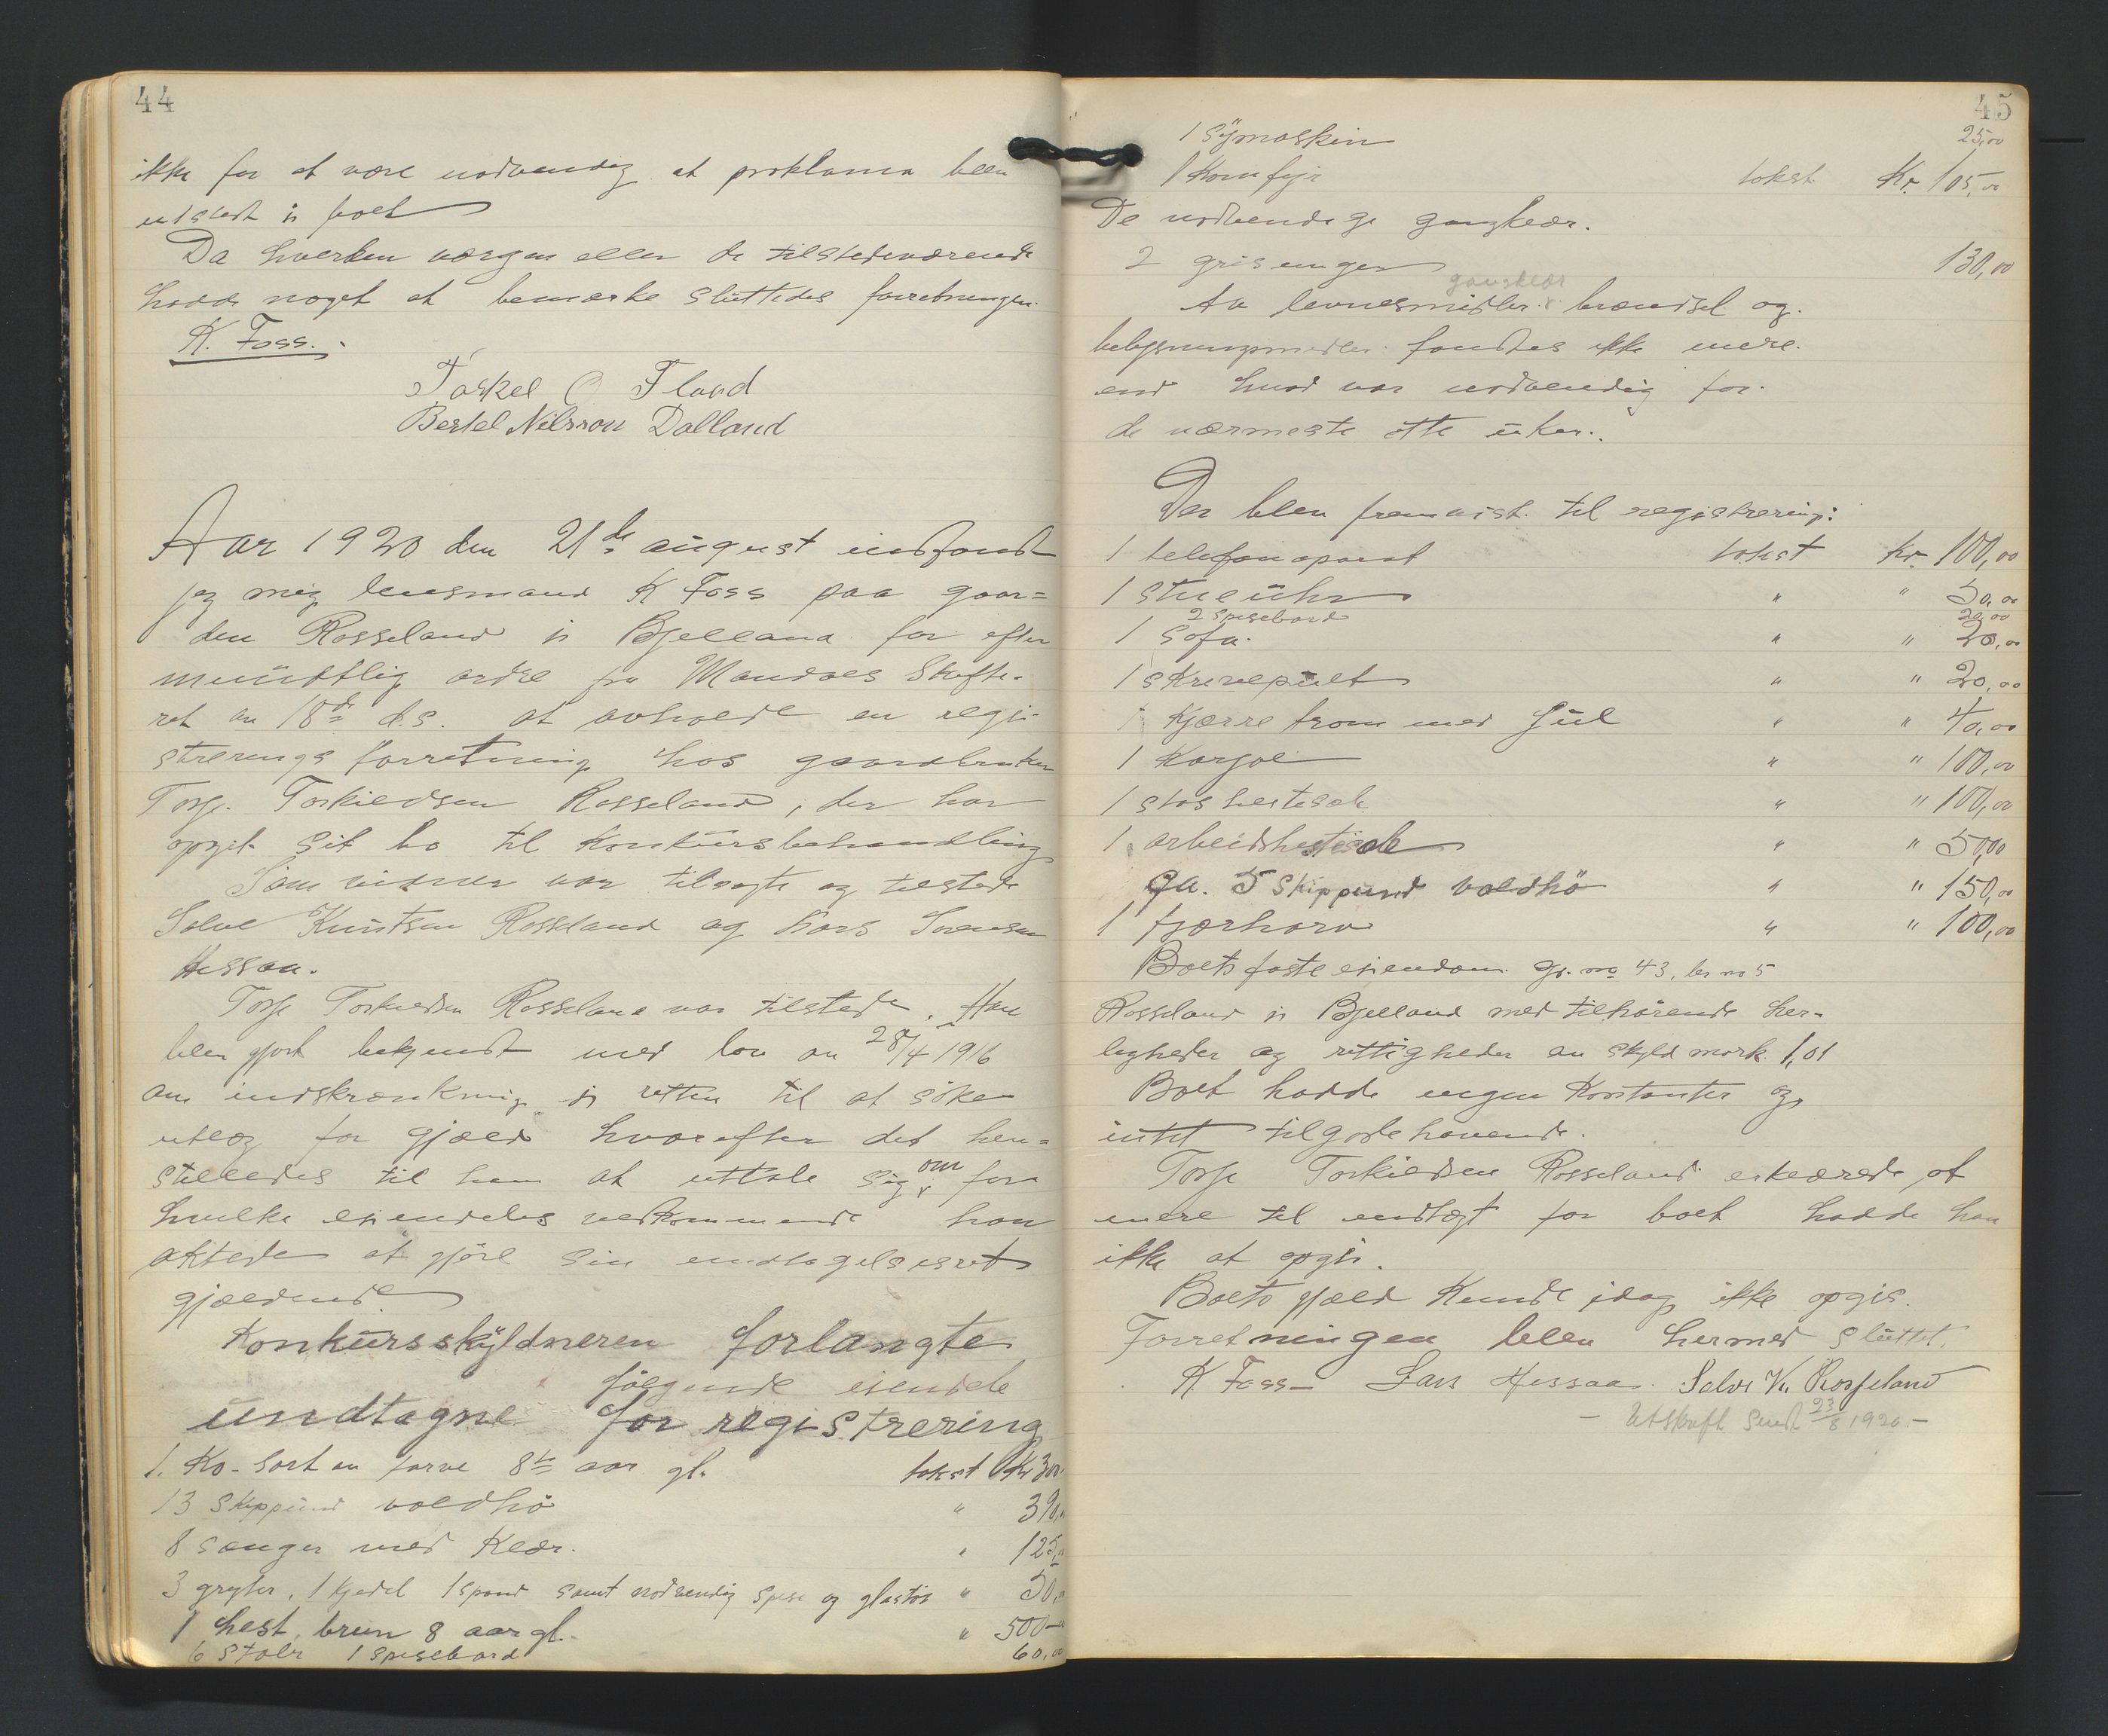 44
ikke for at være nødvendig at proklama blev
utstedt i boet
Da hverken værgen eller de tilstedeværende
hadde noget at bemærke sluttedes forretningen.
K. Foss.
Taskel O Fland
Bertel Nilsson Dalland
Aar 1920 den 21de august indfandt
jeg mig lensmand K Foss paa gaar=
den Rosseland i Bjelland for efter
mundtlig ordre fra Mandals Skifte-
ret av 18de d.s. at avholde en regi-
strerings forretning hos gaardbruker
Torje Torkildsen Rosseland, der har
opgit sit bo til Konkursbehandling
Som vidner var tilsagte og tilstede
Salve Knutsen Rosseland og Lars Sørensen
Hessaa.
Torje Torkildsen Rosseland var tilstede. Han
blev gjort bekjendt med lov av 28/4 1916
om indskrænkning i retten til at søke
utlæg for gjæld hvorefter det hen=
stilledes til ham at uttale sig om for
hvilke eiendeles vedkommende han
aktede at gjøre sin undtagelsesret
gjældende
Konkursskyldneren forlangte
følgende eiendele
undtagne for registrering
1. Ko- sort av farve 8te aar gl. takst Kr 300.
13 skippund voldhö " 390,00
8 senger med Klær. " 125,00
3 gryter, 1 kjedel 1 spand samt nødvendig spise og glastöi " 50,00
1 hest, brun 8 aar gl. " 500-
6 stoler 1 spisebord 60,00
45
1 symaskin 25,00
1 Komfyr takst Kr. 105,00
De nødvendige gangklær.
2 grisunger 130,00
gangklær
Av levnesmidler x brændsel og
belysningsmidler fandtes ikke mere
end hvad var nødvendig for
de nærmeste otte uker.
Der blev fremvist til registrering:
1 telefonaparat takst Kr. 100,00
1 stueühr " " 50,00
2 spisebord 20,00
1 sofa. " " 20,00
1 skrivepult " " 20,00
1 Kjærretrom med hjul " " 40,00
1 Karjol " " 100,00
1 stas hestesele " " 100,00
1 arbeidshestesele " " 50,00
Ca. 5 skippund voldhö " " 150,00
1 fjærharv " " 100,00
Boets faste eiendom gr. no 43, br no 5
Rosseland i Bjelland med tilhørende her-
ligheder og rettigheder av skyld mark 1,01
Boet hadde ingen Kontanter og
intet tilgodehavende.
Torje Torkildsen Rosseland erklærede, at
mere til indtægt for boet hadde han
ikke at opgi.
Boets gjæld Kunde idag ikke opgis.
Forretningen blev hermed sluttet.
K. Foss- Lars Hessaa. Salve K. Rosseland
- Utskrift sendt 23/8 1920.-